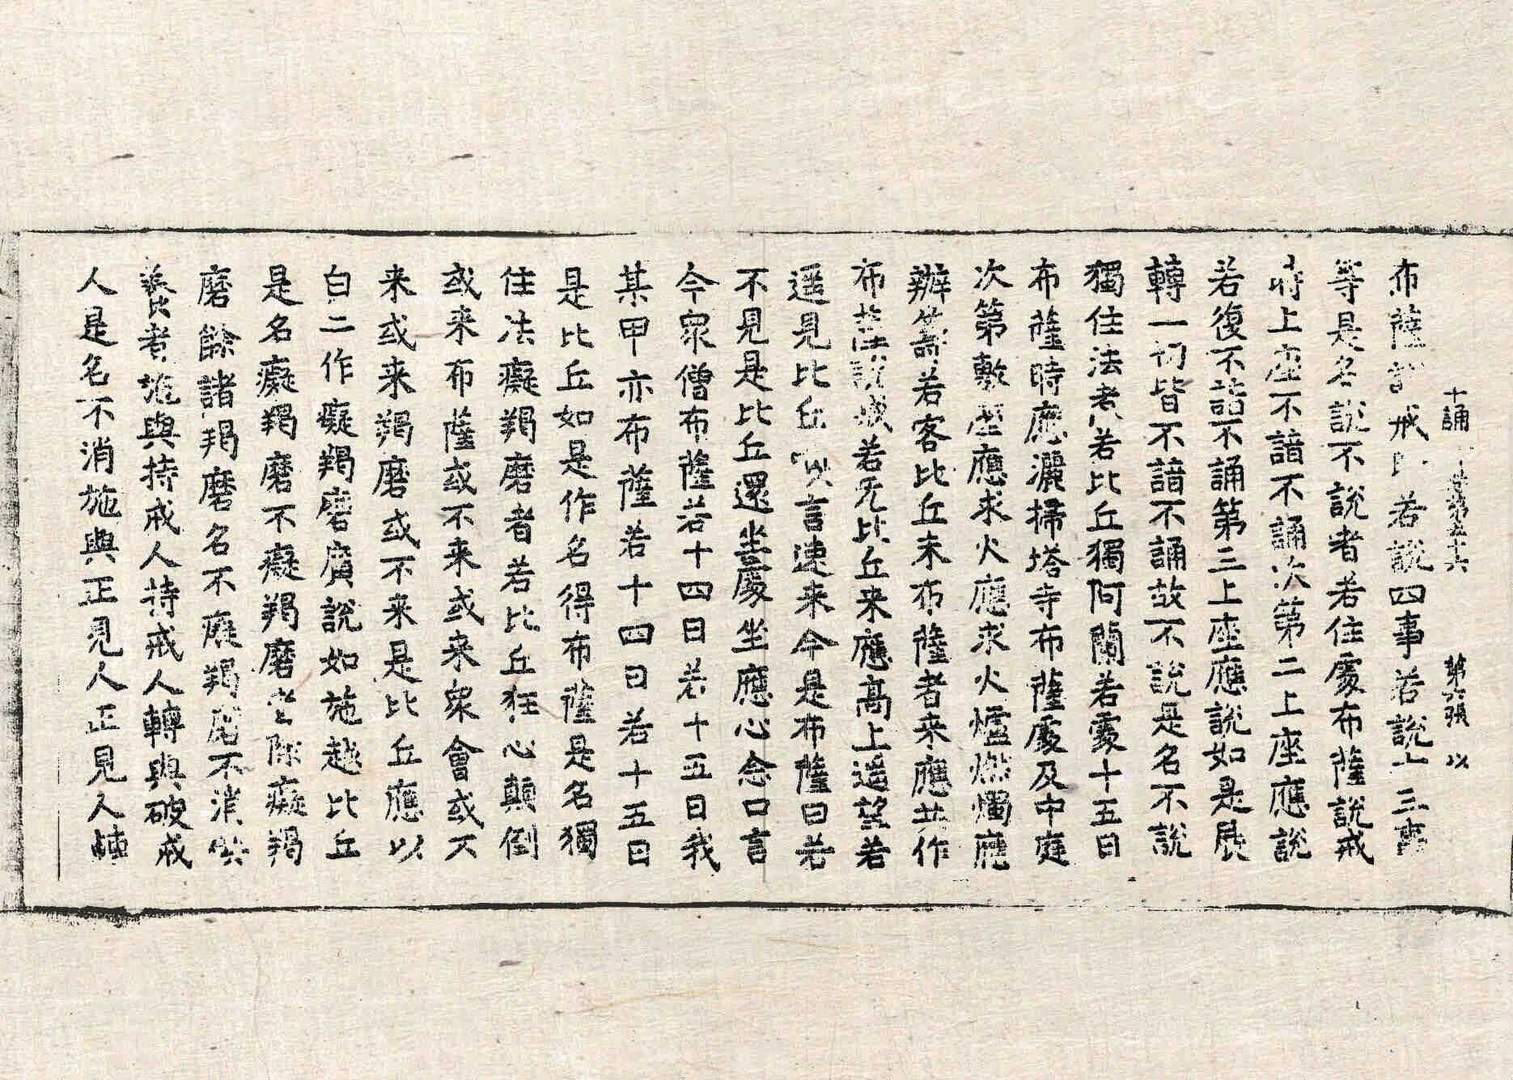 十誦 第五十六 第六張 以
布薩說戒時若說四事若說十三事
等是名說不說者若住處布薩說戒
時上座不諳不誦次第二上座應說
若復不諳不誦第三上座應說如是展
轉一切皆不諳不誦故不說是名不說
獨住法者若比丘獨阿蘭若處十五日
布薩時應灑掃塔寺布薩處及中庭
次第敷座應求火應求火爐燃燭應
辦籌若客比丘未布薩者來應共作
布薩說戒若无比丘来應髙上遥望若
遥見比丘喚言速来今是布薩日若
不見是比丘還坐處坐應心念口言
今衆僧布薩若十四日若十五日我
某甲亦布薩若十四日若十五日
是比丘如是作名得布薩是名獨
住法癡羯磨者若比丘狂心顛倒
或来布薩或不来或来衆會或不
来或来羯磨或不来是比丘應以
白二作癡羯磨廣說如施越比丘
是名癡羯磨不癡羯磨者除癡羯
磨餘諸羯磨名不癡羯磨不消供
養者施與持戒人持戒人轉與破戒
人是名不消施與正見人正見人轉